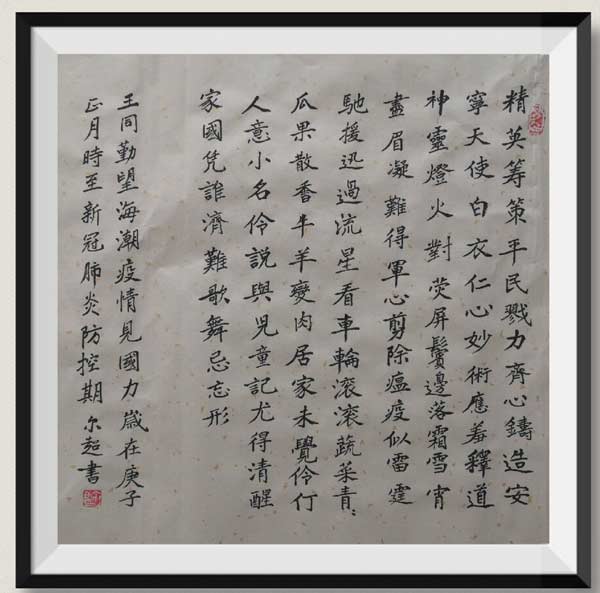 精英筹策平民戮力齊心鑄造安
寧天使白衣仁心妙術應羞釋道
神靈燈火對荧屏鬢邊落霜雪宵
盡眉凝難得軍心剪除瘟疫似雷霆
馳援迅過流星看車輪滚滚蔬菜青〻
瓜果散香牛羊變肉居家未覺伶仃
人意小名伶説與児童記尤得清醒
家國凭誰濟難歌舞忌忘形
王同勤望海潮疫情見國力歲在庚子
正月時至新冠肺炎防控期尔超書